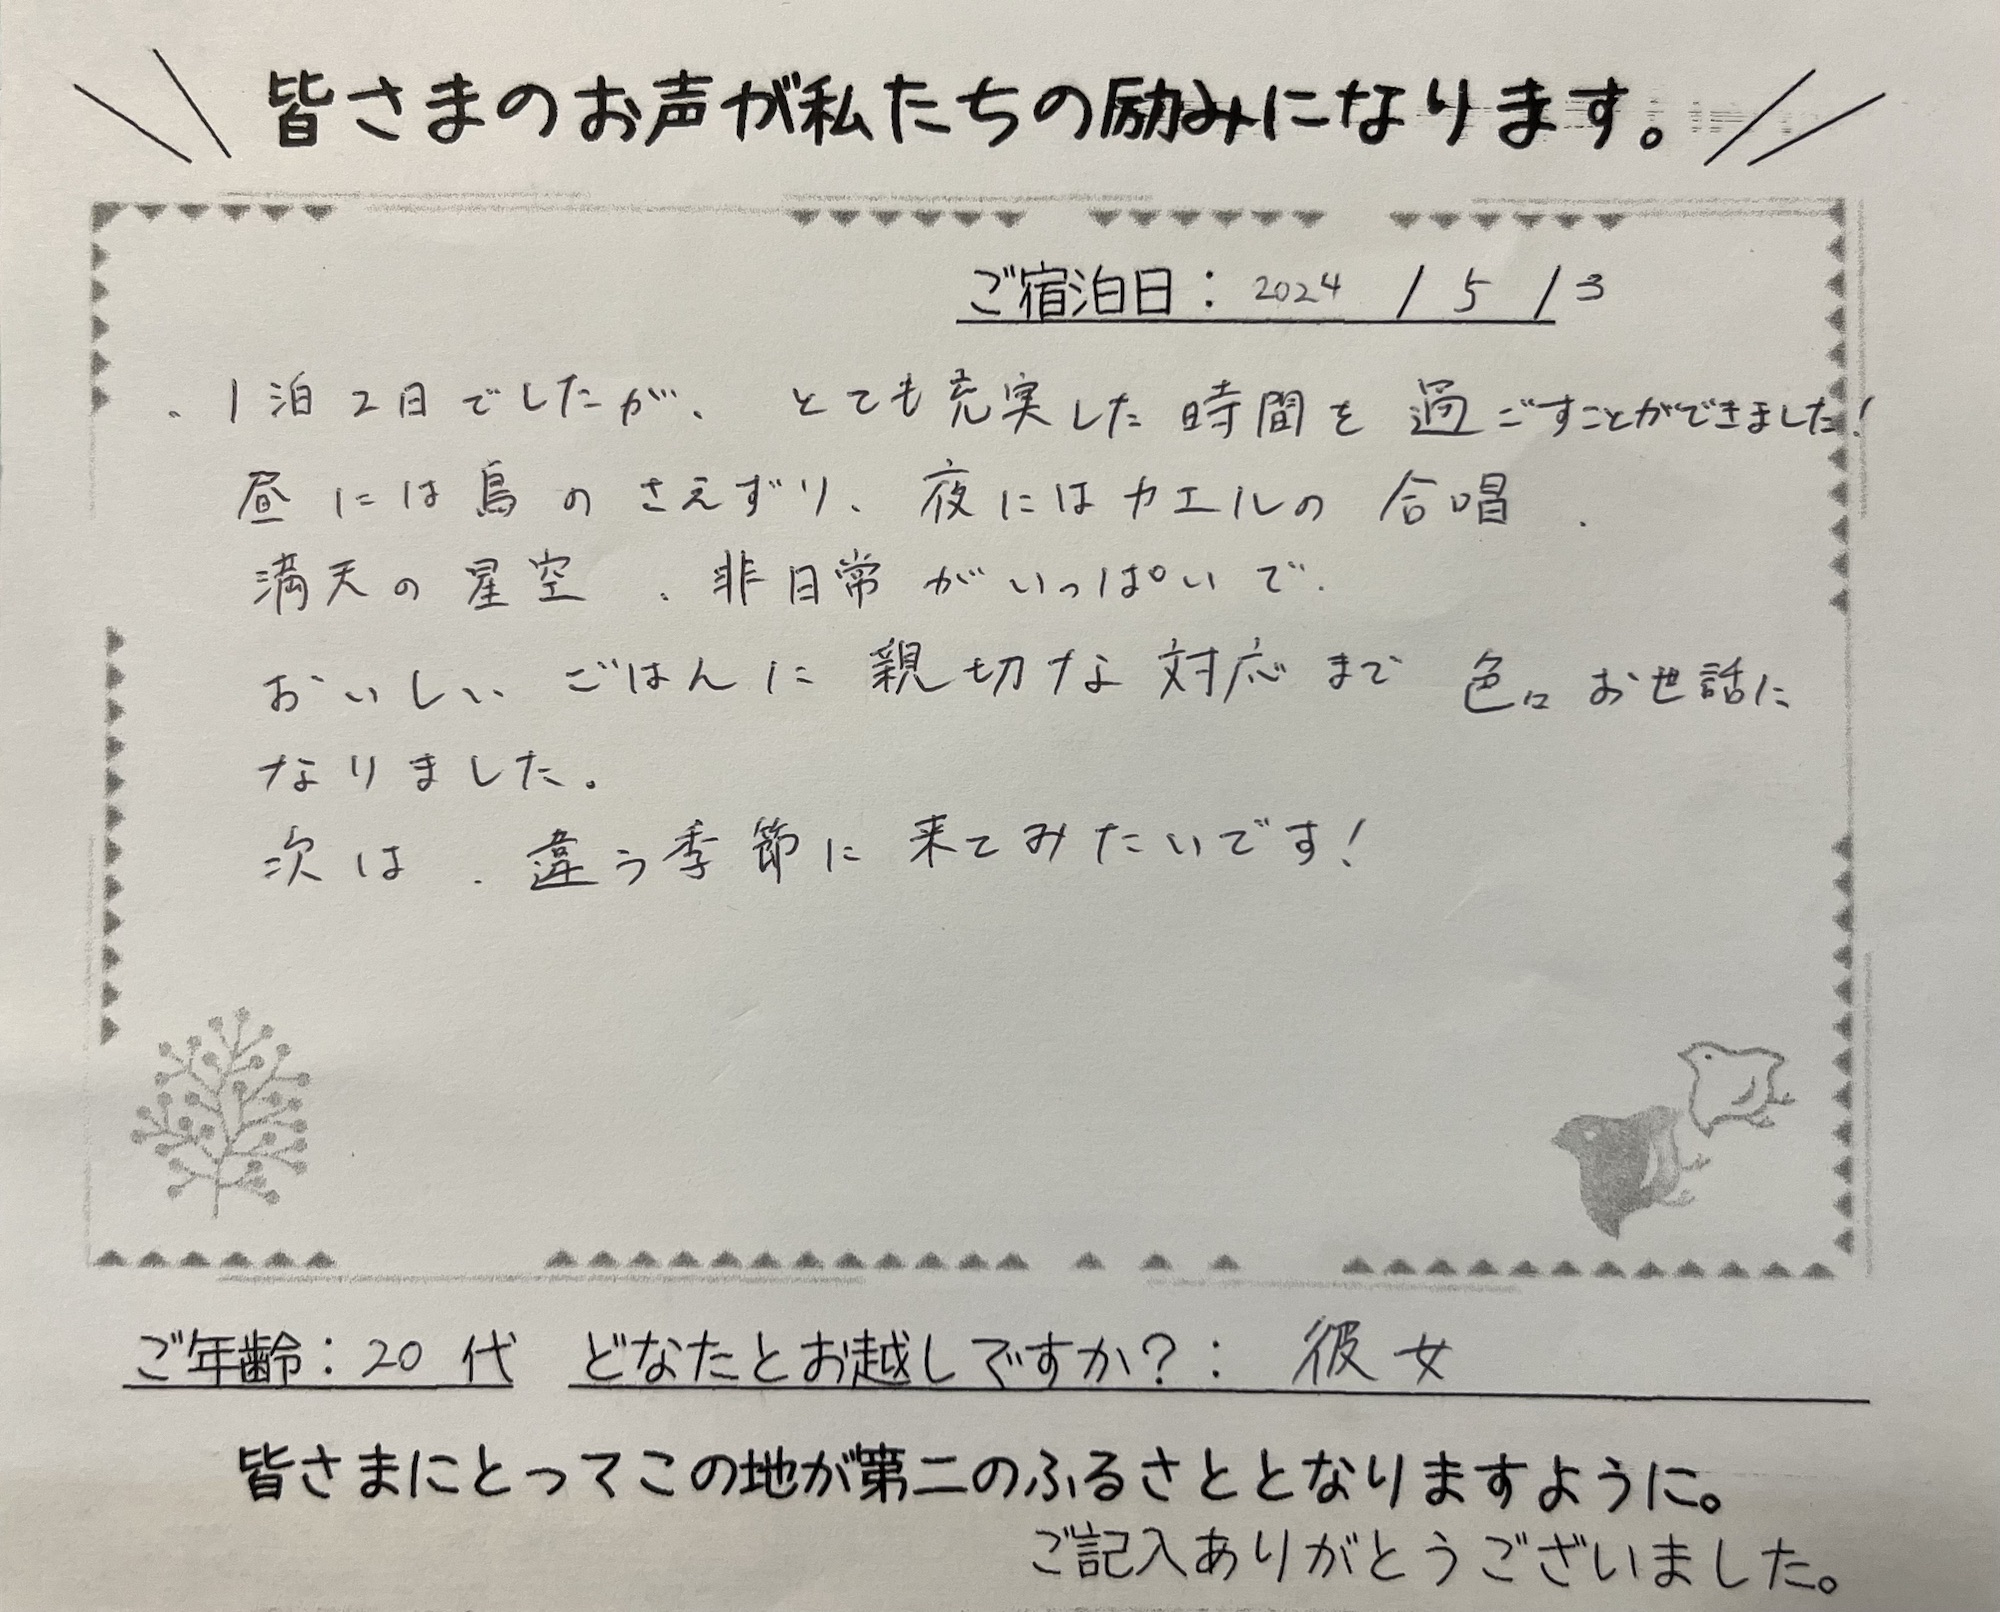 皆さまのお声が私たちの励みになります。
ご宿泊日：2024 / 5 / 3
、1泊2日でしたが、とても充実した時間を過ごすことができました！
昼には鳥のさえずり、夜にはカエルの合唱、
満天の星空、非日常がいっぱいで、
おいしいごはんに親切な対応まで色々お世話に
なりました。
次は、違う季節に来てみたいです！
ご年齢：20代 どなたとお越しですか？：彼女
皆さまにとってこの地が第二のふるさととなりますように。
ご記入ありがとうございました。